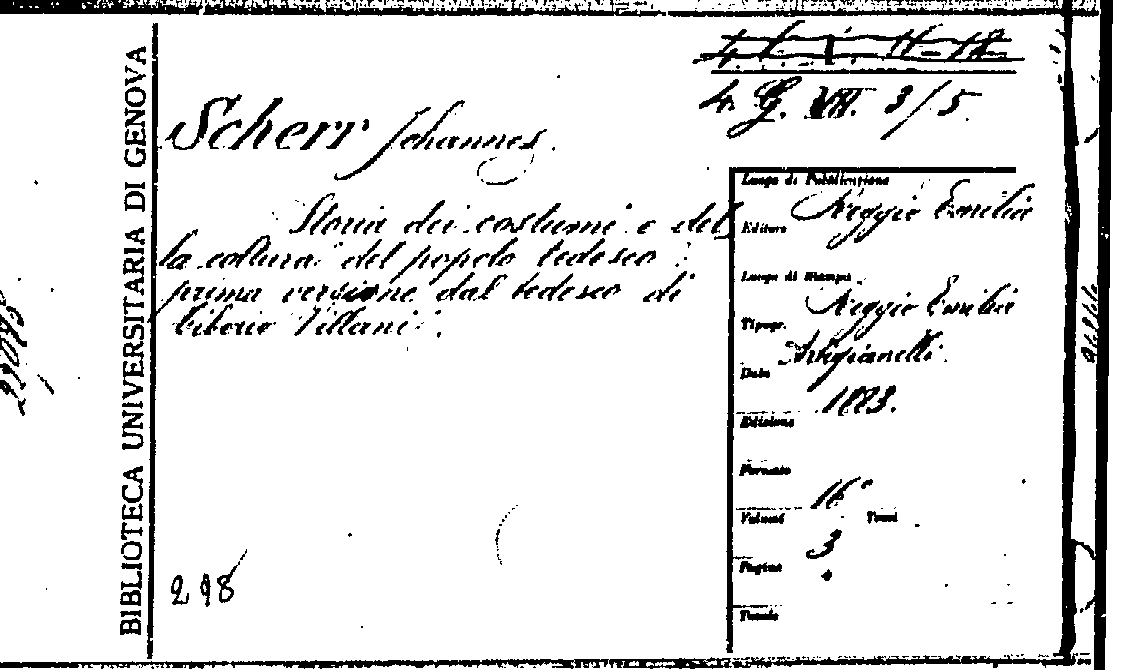 BIBLIOTECA UNIVERSITARIA DI GENOVA
4. G. VII. 3/5
Scherr Johannes.
Storia dei costumi e del
la coltura del popolo tedesco:
prima versione dal tedesco di
Liborio Villani.
298
Luogo di Pubblicazione
Reggio Emilia
Editore
Luogo di Stampa
Reggio Emilia
Tipogr.
Artigianelli
Data
1883.
Edizione
Formato
16°
Volumi Tomi
3
Pagine
Tavole